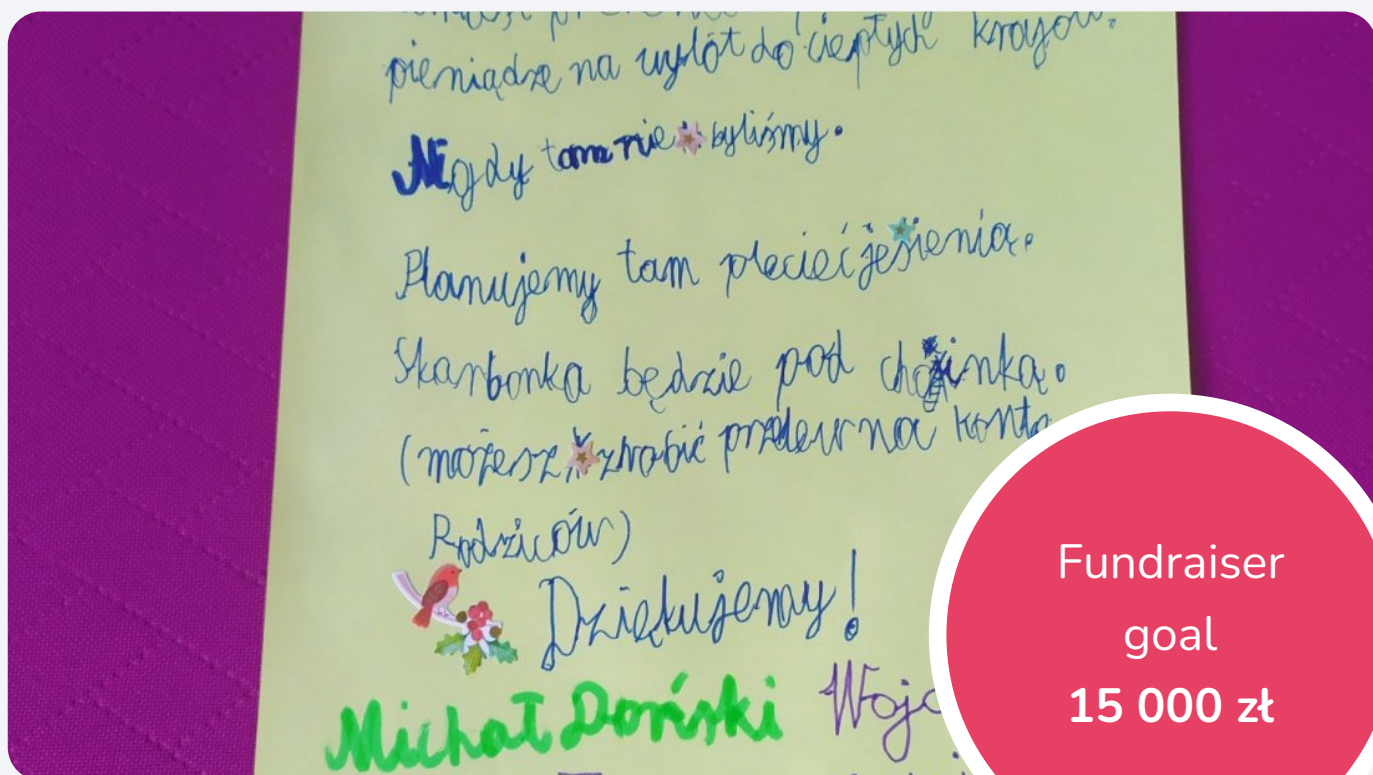 pieniądze na wylot do ciepłych krajów.
Nigdy tam nie byliśmy.
Planujemy tam plecieć jesienią.
Skarbonka będzie pod choinką.
(możesz zrobić przelew na konto
Rodziców)
Dziękujemy!
Michał Doński Wojc
Fundraiser
goal
15 000 zł